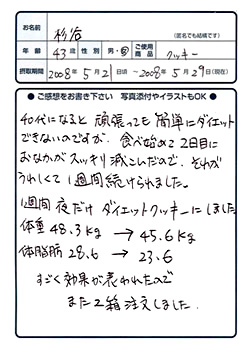 お名前 杉谷
(匿名でも結構です)
年齢 43才 性別 男・女 ご使用商品 クッキー
摂取期間 2008年5月21日頃 ~2008年5月29日(現在)
● ご感想をお書き下さい 写真添付やイラストもOK ●
40代になると 頑張っても 簡単にダイエット
できないのですが、食べ始めて2日目に
おなかがスッキリ減こんだので、それが
うれしくて1週間続けられました。
1週間 夜だけ ダイエットクッキーにしました
体重 48.3kg → 45.6kg
体脂肪 28.6 → 23.6
すごく効果が表われたので
また2箱注文しました。